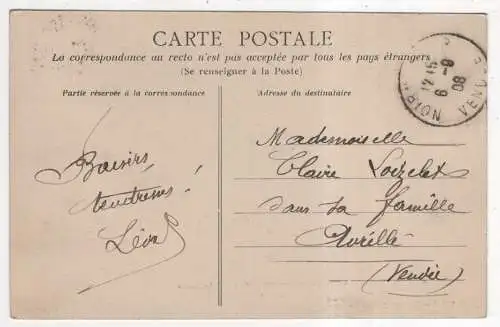 CARTE POSTALE
La correspondance au recto n'est pas acceptée par tous les pays étrangers
(Se renseigner à la Poste)
Partie réservée à la correspondance
Adresse du destinataire
Baisers
tendresses!
Léon
Mademoiselle
Claire Loizelet
dans sa famille
Avrillé
(Vendée)
12 15
6 -9
08
NOIRM
VENDEE